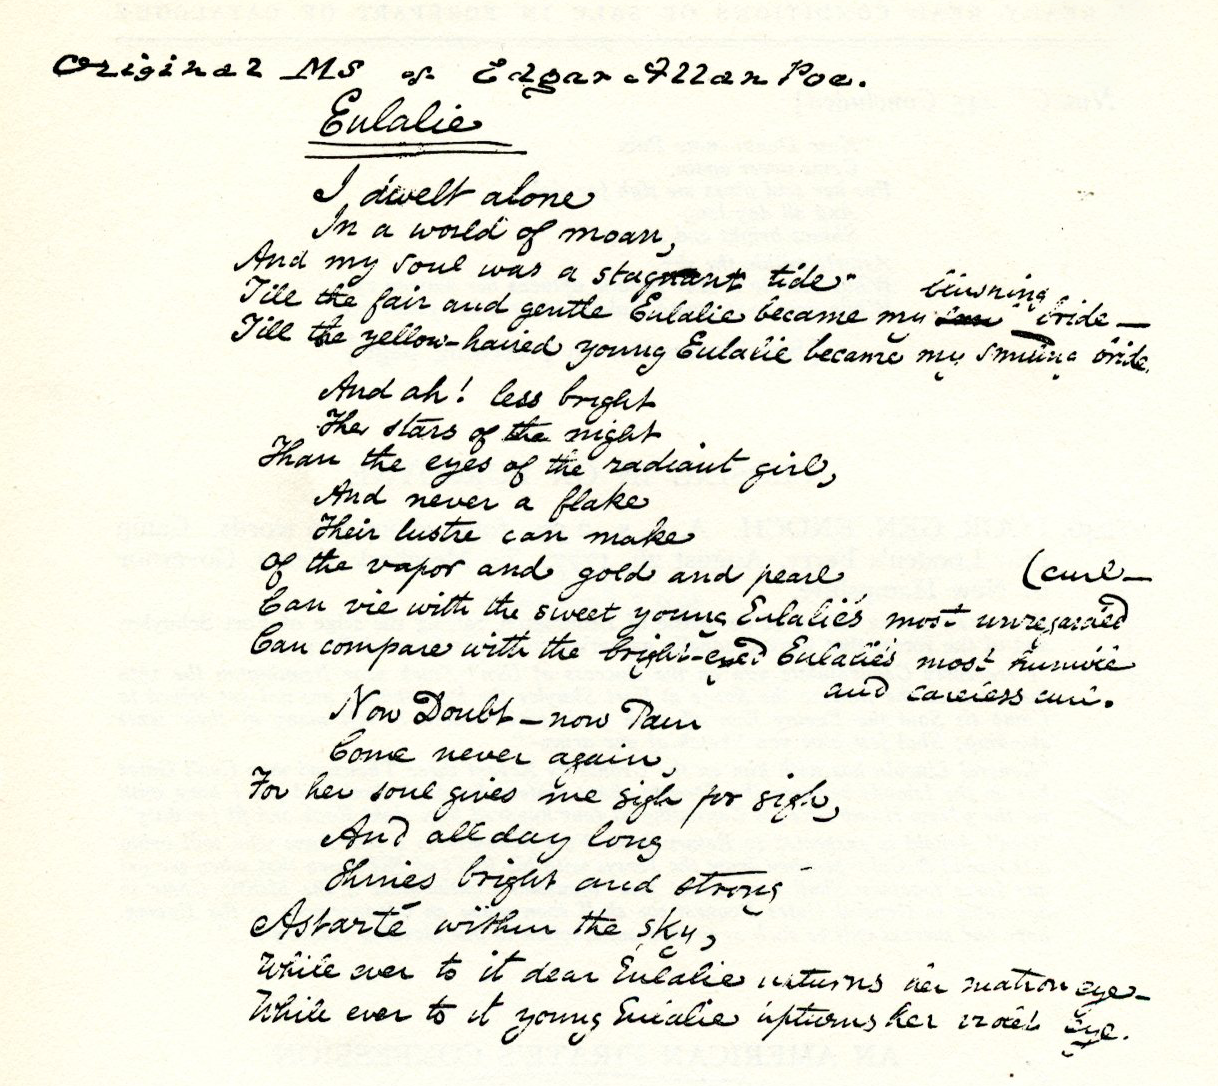 Original MS of Edgar Allan Poe.
Eulalie
I dwelt alone
In a world of moan,
And my soul was a stagnant tide
blushing
Till the fair and gentle Eulalie became my bride —
Till the yellow-haired young Eulalie became my smiling bride.
And ah! less bright
The stars of the night
Than the eyes of the radiant girl,
And never a flake
Their lustre can make
Of the vapor and gold and pearl
(curl —
Can vie with the sweet young Eulalie's most unregarded
Can compare with the bright-eyed Eulalie's most humble
and careless curl.
Now Doubt — now Pain
Come never again,
For her soul gives me sigh for sigh,
And all day long
Shines bright and strong
Astarté within the sky,
While ever to it dear Eulalie upturns her matron eye —
While ever to it young Eulalie upturns her violet eye.